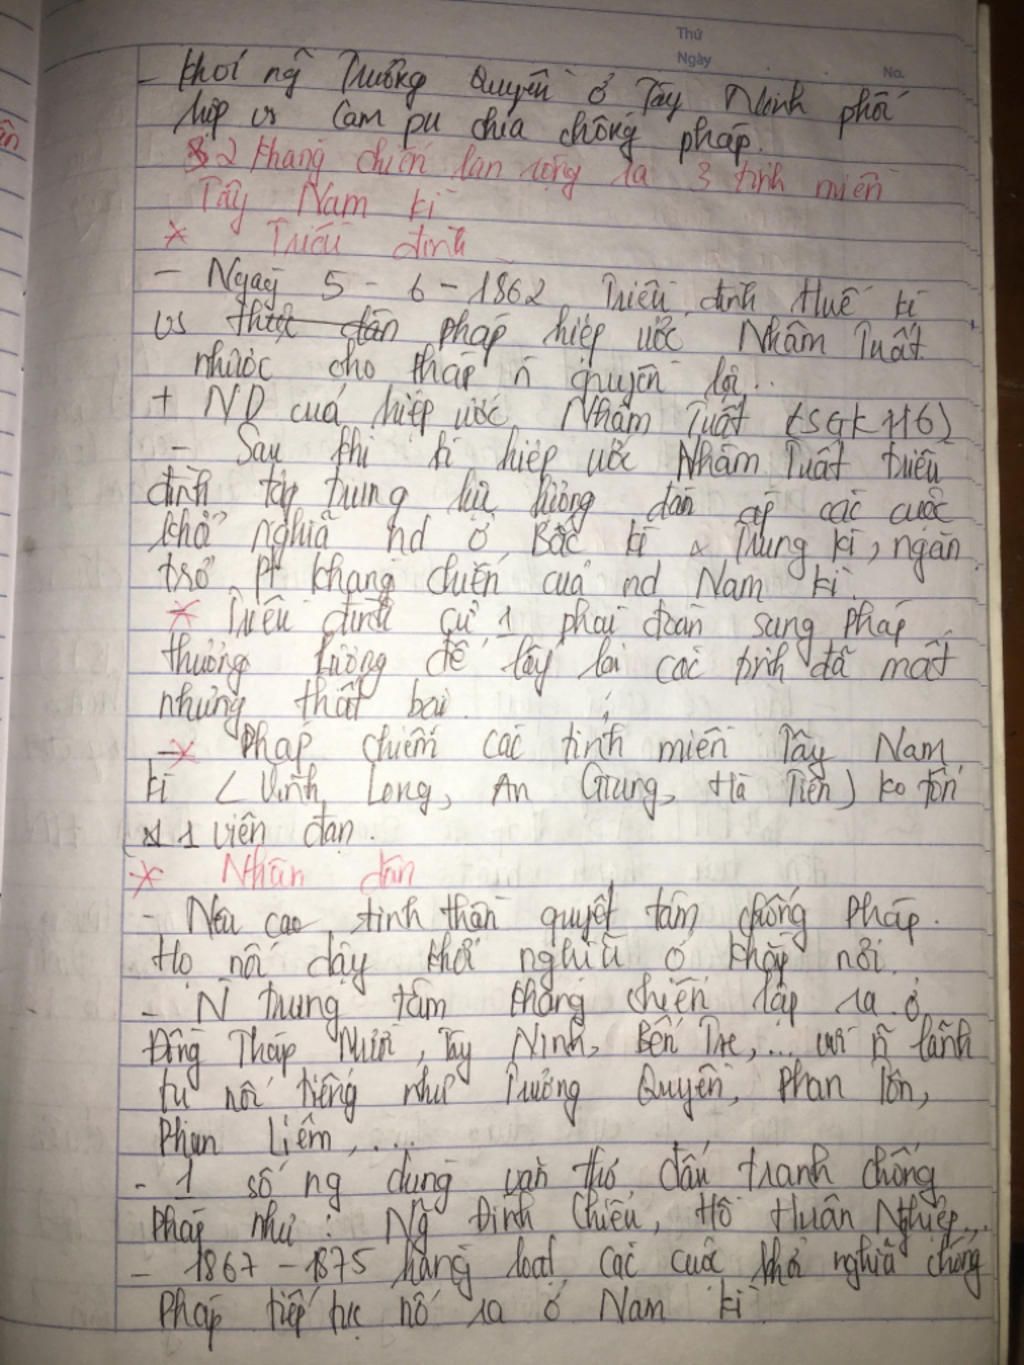 Thứ
Ngày
No.
- Khởi ng Trương Quyền ở Tây Ninh phối
hợp vs Cam pu chia chống pháp.
2 kháng chiến lan rộng ra 3 tỉnh miền
Tây Nam kì
* Triều đình
- Ngày 5 - 6 - 1862 Triều đình Huế kí
vs thực dân pháp hiệp ước Nhâm Tuất
nhước cho Pháp ñ quyền lợi..
+ ND của hiệp ước Nhâm Tuất (SGK 116)
- Sau khi kí hiệp ước Nhâm Tuất triều
đình tập trung lực lượng đàn áp các cuộc
khở nghĩa nd ở Bắc kì & Trung kì, ngăn
trở pt kháng chiến của nd Nam kì.
* Triều đình cử 1 phái đoàn sang Pháp
thương lượng để lấy lại các tỉnh đã mất
nhưng thất bại.
-* Pháp chiếm các tỉnh miền Tây Nam
kì (Vĩnh Long, An Giang, Hà Tiên) ko tốn
1 viên đạn.
* Nhân dân
- Nêu cao tinh thần quyết tâm chống Pháp.
Họ nổi dậy khởi nghĩa ở khắp nơi.
- Ñ trung tâm kháng chiến lập ra ở
Đồng Tháp Mười, Tây Ninh, Bến Tre,... với ñ lãnh
tụ nổi tiếng như Trương Quyền, Phan Tôn,
Phan Liêm,....
- 1 số ng dùng văn thơ đấu tranh chống
Pháp như: Ng Đình Chiểu, Hồ Huân Nghiệp...
- 1867 - 1875 hàng loạt các cuộc khở nghĩa chống
Pháp tiếp tục nổ ra ở Nam kì